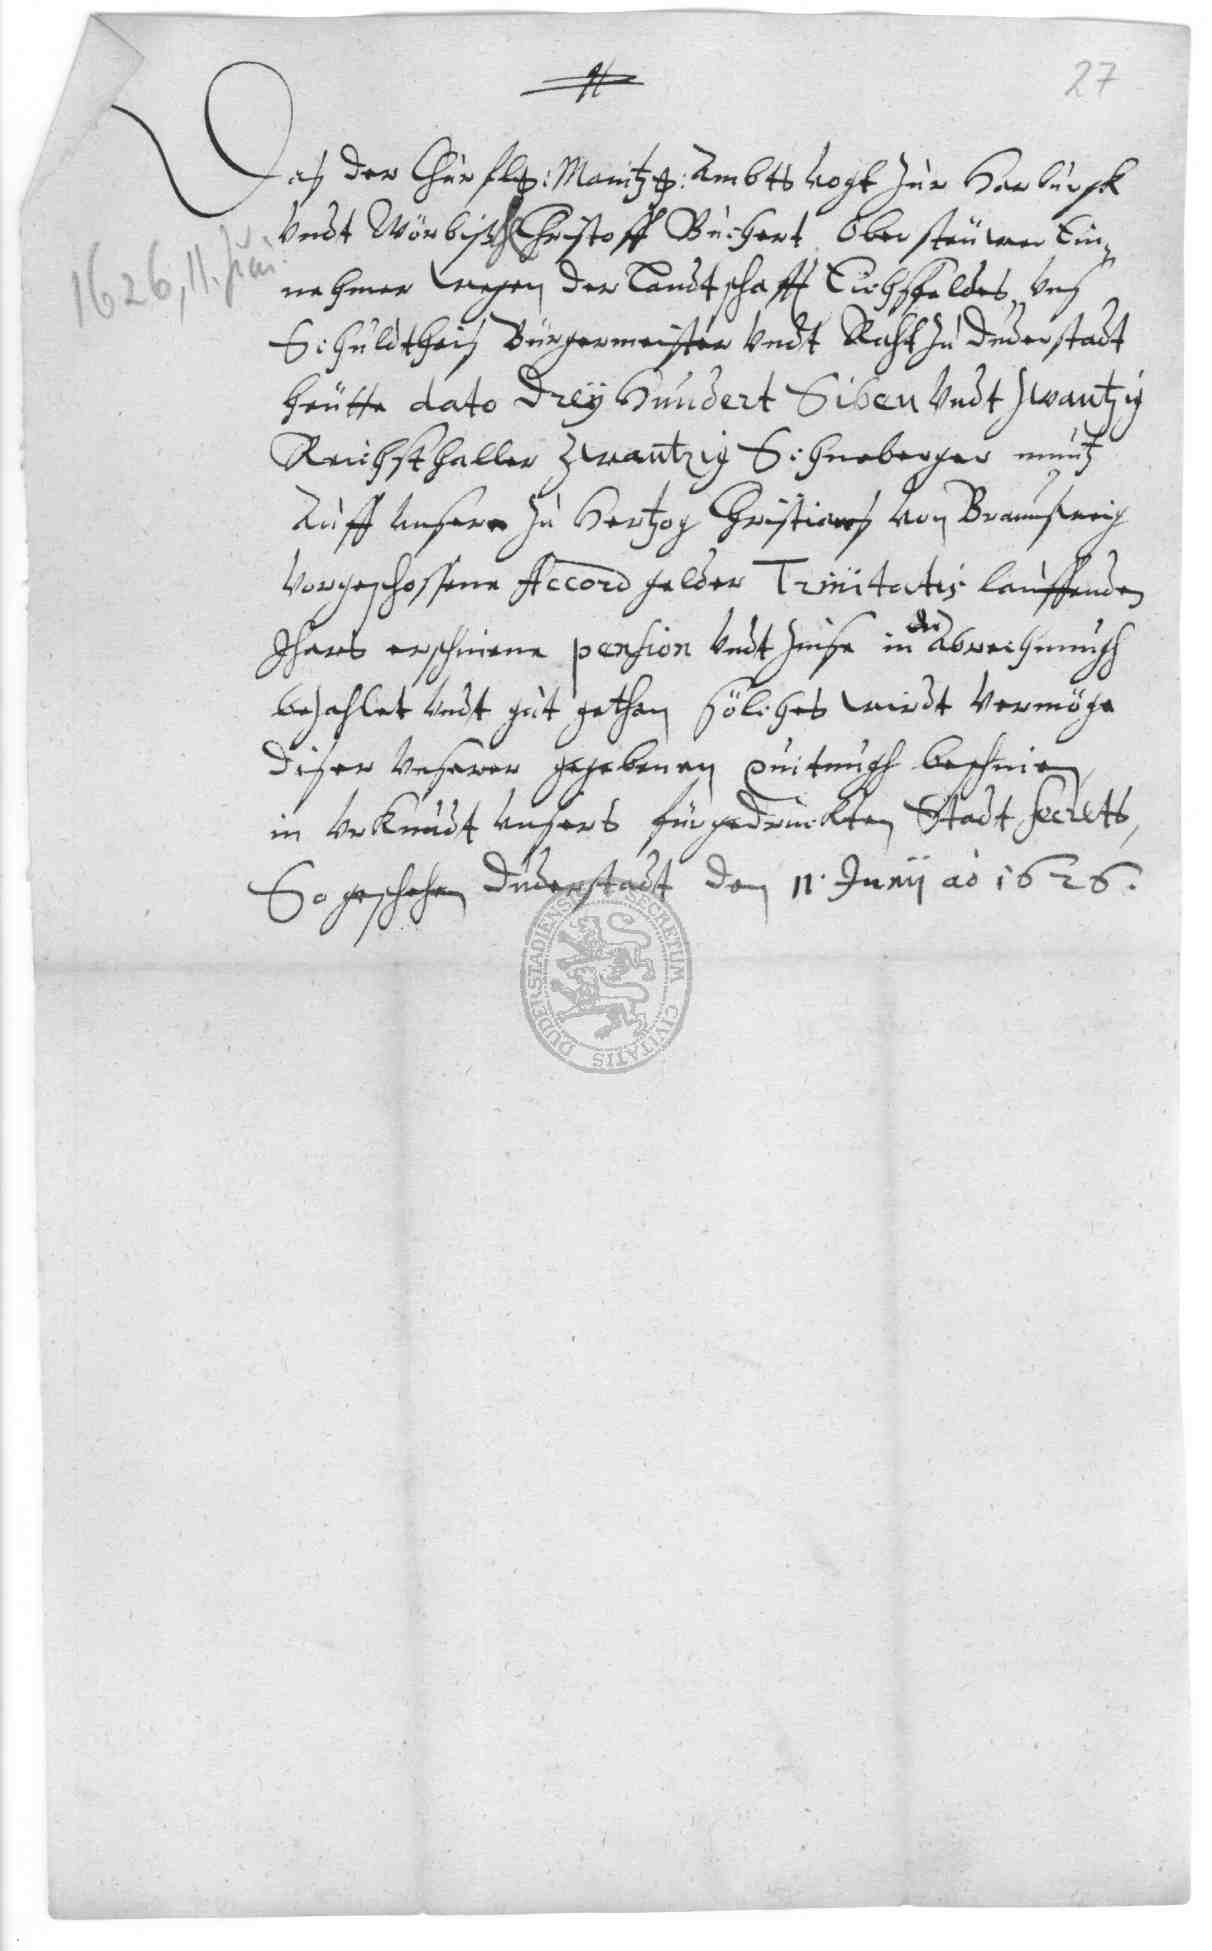 27
1626, 11. Juni.
Daß der Churfl: Maintz: Ambts Vogt zur Harburgk
Vndt Wörbiß Christoff Buchert Ober steuwer Ein-
nehmer wegen der Landtschafft Eichsfeldes, Vnß
Schuldtheiß Bürgermeister Vndt Raht zu Duderstadt
heütte dato Dreÿ Hundert Siben Vndt zwantzig
Reichsthaller Zwantzig Schneberger müntz
Auff Vnsere zu Hertzog Christians von Braunsweig
Vorgeschossene Accord gelder Trinitatis lauffenden
Jhars erschinene pension Vndt Zinse in der abrechnungh
bezahlet Vndt gut gethan solches wirdt Vermöge
diser Vnserer gegebenen quitungh beschinen,
in Vrkundt Vnsers fürgedruckten Stadt Secrets,
So geschehen Duderstadt den 11. Junÿ ao 1626.
SECRETUM CIVITATIS DUDERSTADIENSIS